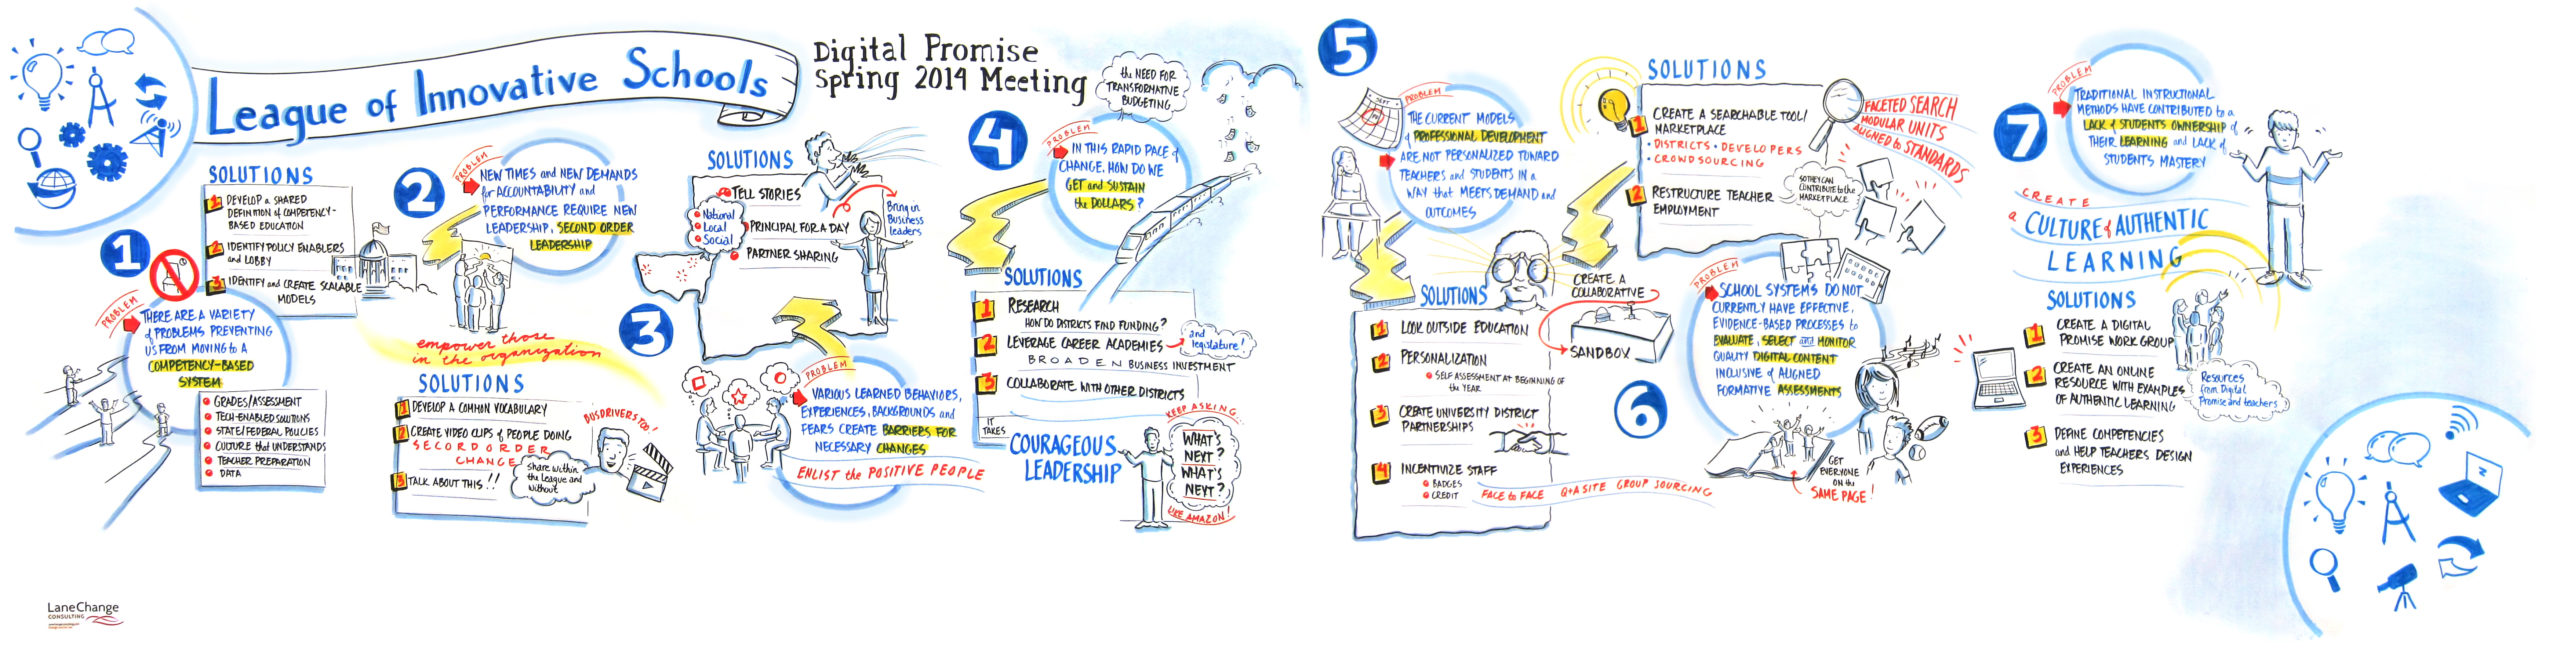 League of Innovative Schools
Digital Promise
Spring 2014 Meeting
1
PROBLEM
THERE ARE A VARIETY
of PROBLEMS PREVENTING
US FROM MOVING to A
COMPETENCY-BASED
SYSTEM
GRADES/ASSESSMENT
TECH-ENABLED SOLUTIONS
STATE/FEDERAL POLICIES
CULTURE that UNDERSTANDS
TEACHER PREPARATION
DATA
SOLUTIONS
1 DEVELOP a SHARED
DEFINITION of COMPETENCY-
BASED EDUCATION
2 IDENTIFY POLICY ENABLERS
and LOBBY
3 IDENTIFY and CREATE SCALABLE
MODELS
2
PROBLEM
NEW TIMES and NEW DEMANDS
for ACCOUNTABILITY and
PERFORMANCE REQUIRE NEW
LEADERSHIP, SECOND ORDER
LEADERSHIP
empower those
in the organization
SOLUTIONS
1 DEVELOP a COMMON VOCABULARY
2 CREATE VIDEO CLIPS of PEOPLE DOING
SECOND ORDER
CHANGE
3 TALK ABOUT THIS!!
share within
the League and
without
BUS DRIVERS TOO!
3
PROBLEM
VARIOUS LEARNED BEHAVIORS,
EXPERIENCES, BACKGROUNDS and
FEARS CREATE BARRIERS FOR
NECESSARY CHANGES
ENLIST the POSITIVE PEOPLE
SOLUTIONS
TELL STORIES
National
Local
Social
PRINCIPAL FOR A DAY
PARTNER SHARING
Bring in
Business
leaders
4
the NEED FOR
TRANSFORMATIVE
BUDGETING
PROBLEM
IN THIS RAPID PACE of
CHANGE, HOW DO WE
GET and SUSTAIN
the DOLLARS?
SOLUTIONS
1 RESEARCH
HOW DO DISTRICTS FIND FUNDING?
2 LEVERAGE CAREER ACADEMIES
and
legislature!
BROADEN BUSINESS INVESTMENT
3 COLLABORATE WITH OTHER DISTRICTS
IT
TAKES
COURAGEOUS
LEADERSHIP
KEEP ASKING...
WHAT'S
NEXT?
WHAT'S
NEXT?
LIKE AMAZON!
5
SEPT
PROBLEM
THE CURRENT MODELS
of PROFESSIONAL DEVELOPMENT
ARE NOT PERSONALIZED TOWARD
TEACHERS and STUDENTS IN a
WAY that MEETS DEMAND and
OUTCOMES
SOLUTIONS
1 LOOK OUTSIDE EDUCATION
2 PERSONALIZATION
SELF ASSESSMENT AT BEGINNING OF
the YEAR
3 CREATE UNIVERSITY DISTRICT
PARTNERSHIPS
4 INCENTIVIZE STAFF
BADGES
CREDIT
FACE to FACE Q+A SITE GROUP SOURCING
CREATE A
COLLABORATIVE
SANDBOX
6
PROBLEM
SCHOOL SYSTEMS DO NOT
CURRENTLY HAVE EFFECTIVE,
EVIDENCE-BASED PROCESSES to
EVALUATE, SELECT and MONITOR
QUALITY DIGITAL CONTENT
INCLUSIVE of ALIGNED
FORMATIVE ASSESSMENTS
GET
EVERYONE
ON the
SAME PAGE!
SOLUTIONS
1 CREATE A SEARCHABLE TOOL/
MARKETPLACE
• DISTRICTS • DEVELOPERS
• CROWDSOURCING
2 RESTRUCTURE TEACHER
EMPLOYMENT
SO THEY CAN
CONTRIBUTE to the
MARKETPLACE
FACETED SEARCH
MODULAR UNITS
ALIGNED to STANDARDS
7
PROBLEM
TRADITIONAL INSTRUCTIONAL
METHODS HAVE CONTRIBUTED to a
LACK of STUDENTS OWNERSHIP of
THEIR LEARNING and LACK of
STUDENTS MASTERY
CREATE
a CULTURE of AUTHENTIC
LEARNING
SOLUTIONS
1 CREATE A DIGITAL
PROMISE WORK GROUP
2 CREATE AN ONLINE
RESOURCE WITH EXAMPLES
OF AUTHENTIC LEARNING
Resources
from Digital
Promise and teachers
3 DEFINE COMPETENCIES
and HELP TEACHERS DESIGN
EXPERIENCES
LaneChange
CONSULTING